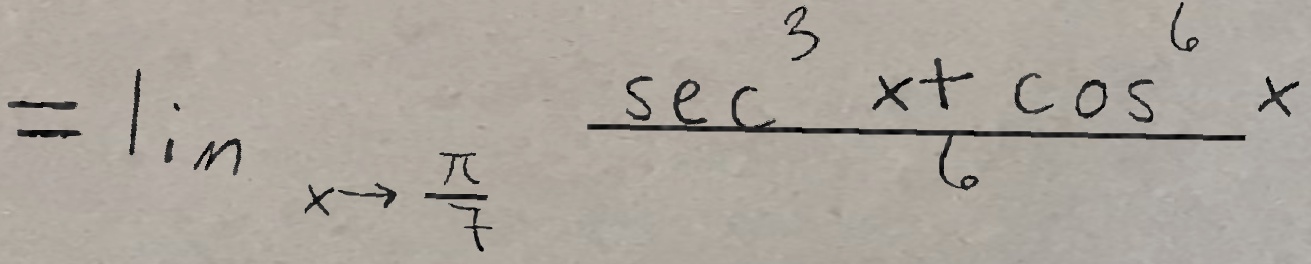 = lim x→π/7 (sec³ x + cos⁶ x)/6